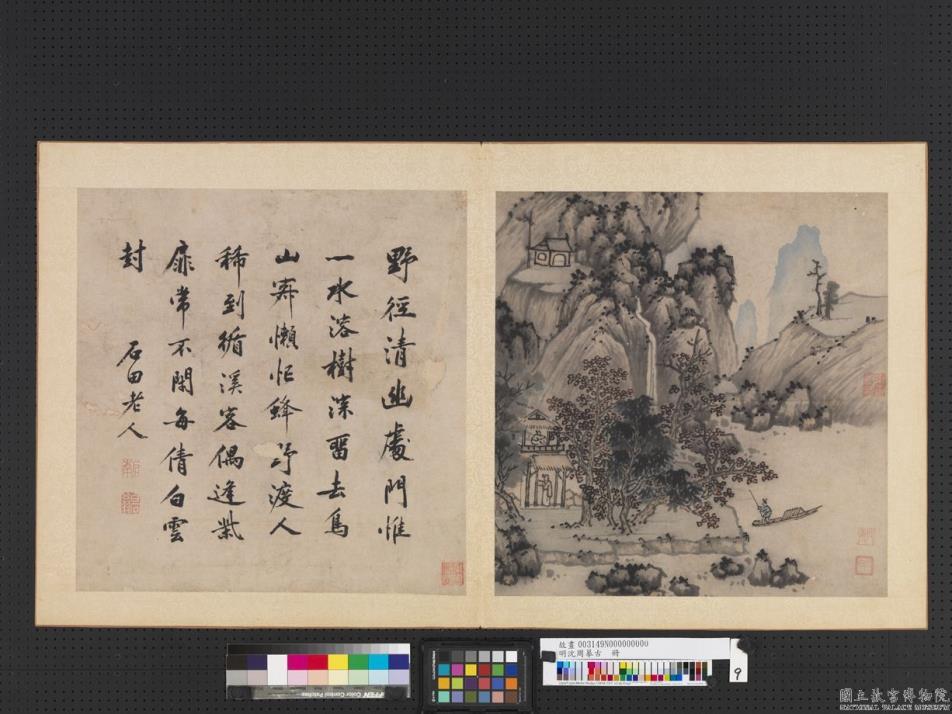 野徑清幽處門惟
一水溶樹深留去鳥
山懶忙蜂渡人
稀到循溪客偶逢柴
扉常不閉每倩白雲
封
石田老人
故畫 003149N000000000
明沈周摹古 冊
9
國立故宮博物院
NATIONAL PALACE MUSEUM